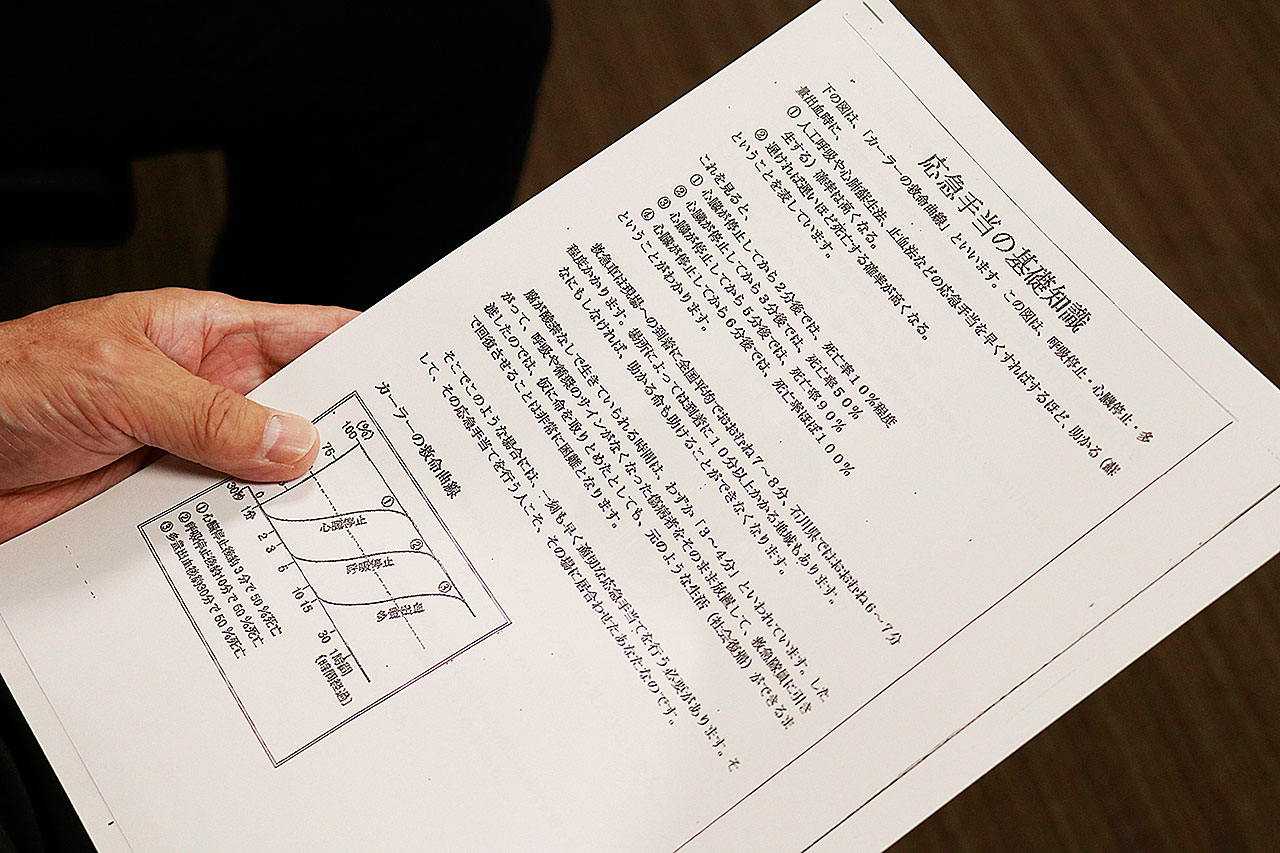 応急手当の基礎知識
下の図は、「カーラーの救命曲線」といいます。この図は、呼吸停止・心臓停止・多
量出血時に、
① 人工呼吸や心肺蘇生法、止血法などの応急手当を早くすればするほど、助かる（蘇
生する）確率は高くなる。
② 遅ければ遅いほど死亡する確率が高くなる。
ということを表しています。
これを見ると、
① 心臓が停止してから２分後では、死亡率１０％程度
② 心臓が停止してから３分後では、死亡率５０％
③ 心臓が停止してから５分後では、死亡率９０％
④ 心臓が停止してから６分後では、死亡率ほぼ１００％
ということがわかります。
救急車は現場への到着に全国平均でおおむね７～８分、石川県ではおおむね６～７分
程度かかります。場所によっては到着に１０分以上かかる地域もあります。
なにもしなければ、助かる命も助けることができなくなります。
脳が酸素なしで生きていられる時間は、わずか「３～４分」といわれています。した
がって、呼吸や循環のサインがなくなった傷病者をそのまま放置して、救急隊員に引き
渡したのでは、仮に命を取りとめたとしても、元のような生活（社会復帰）ができるま
で回復させることは非常に困難となります。
そこでこのような場合には、一刻も早く適切な応急手当てを行う必要があります。そ
して、その応急手当てを行う人こそ、その場に居合わせたあなたなのです。
カーラーの救命曲線
(%)
100
75
① ② ③
心臓停止
呼吸停止
多量出血
0
30秒 1分 2 3 5 10 15 30 1時間
(時間経過)
①心臓停止後約3分で50%死亡
②呼吸停止後約10分で50%死亡
③多量出血後約30分で50%死亡